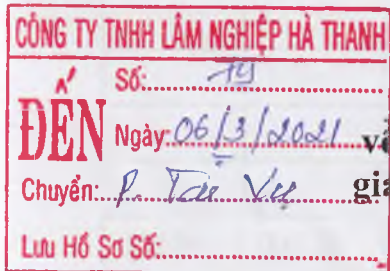 CÔNG TY TNHH LÂM NGHIỆP HÀ THANH
Số: 79
ĐẾN
Ngày: 06/3/2021
Chuyển: P. Tài Vụ
Lưu Hồ Sơ Số: